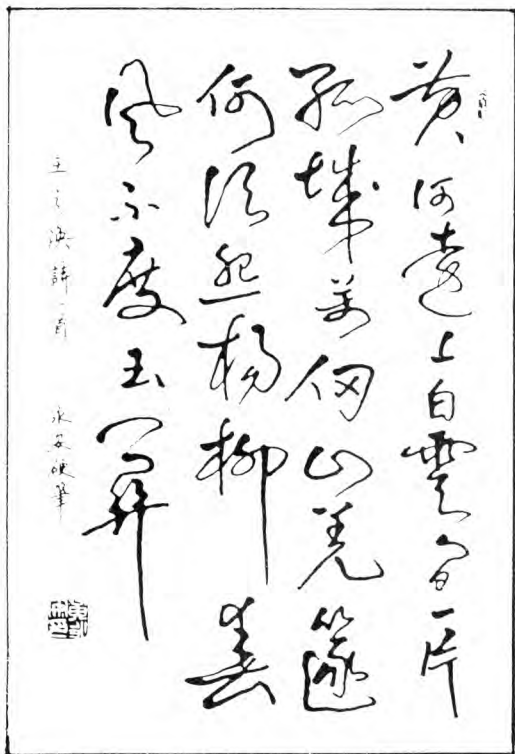 黄河遠上白雲間一片
孤城萬仞山羌篴
何須怨楊柳春
風不度玉關
王之渙詩一首 硬筆